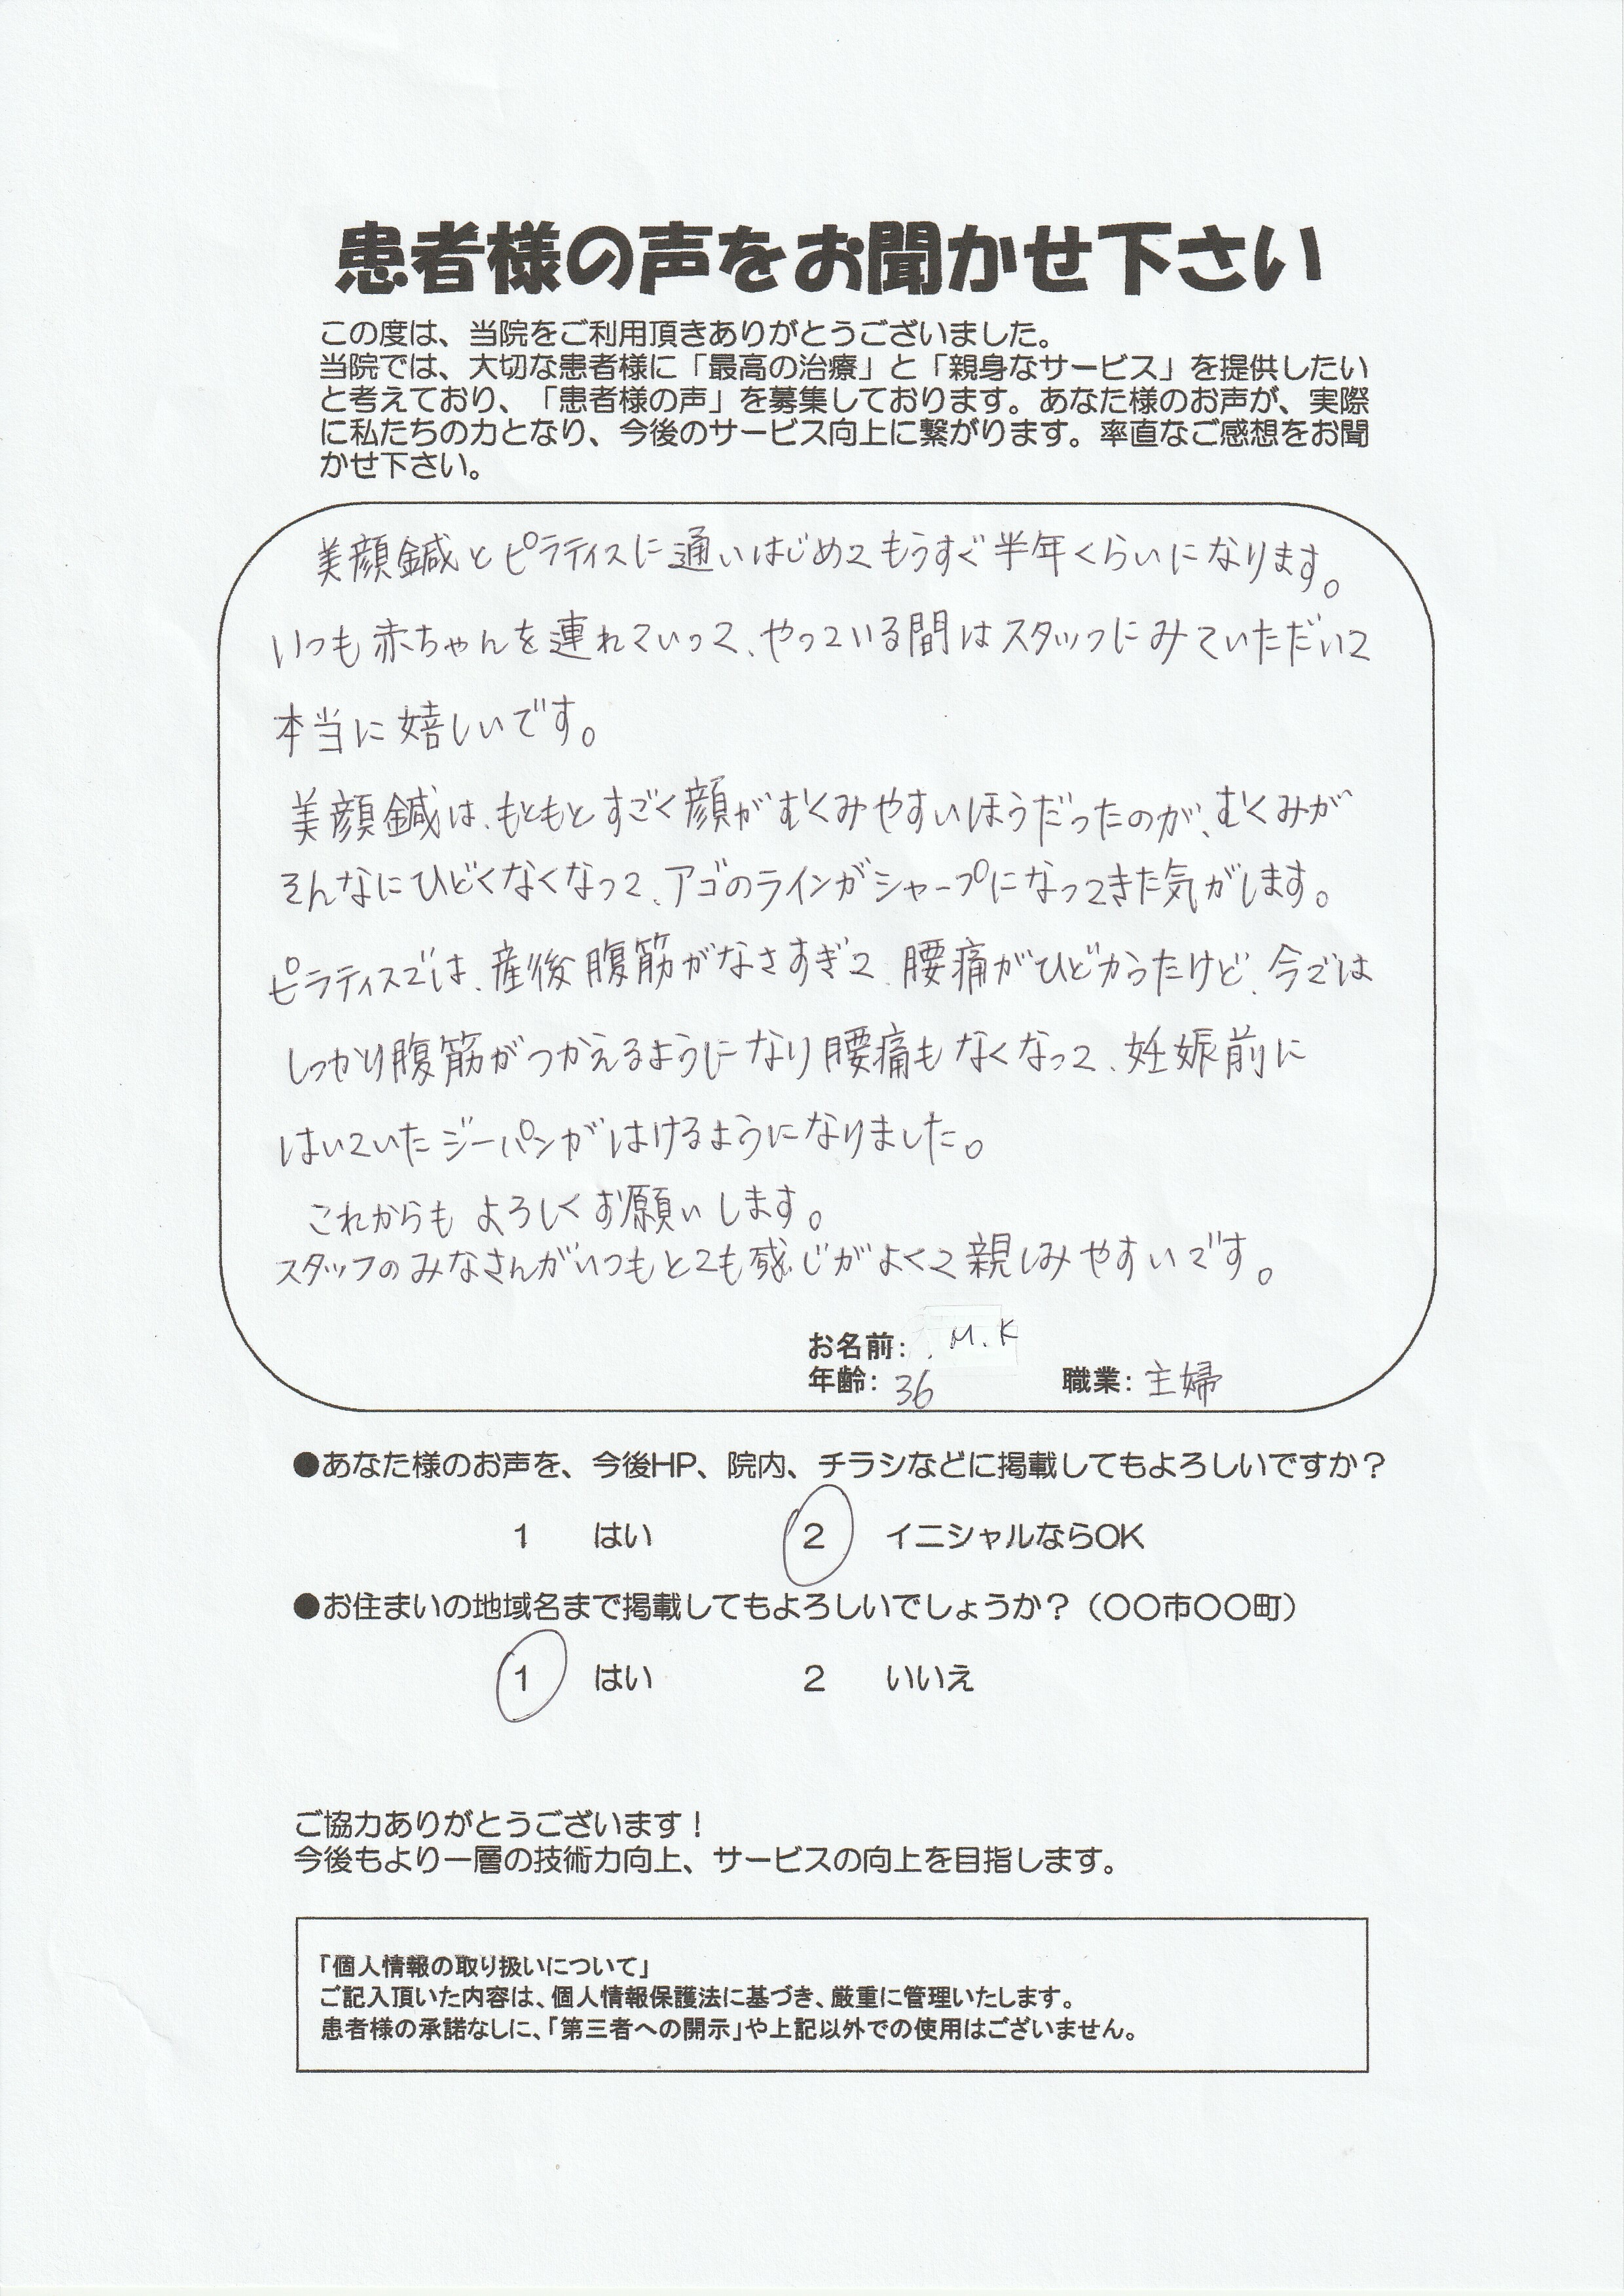 患者様の声をお聞かせ下さい
この度は、当院をご利用頂きありがとうございました。
当院では、大切な患者様に「最高の治療」と「親身なサービス」を提供したい
と考えており、「患者様の声」を募集しております。あなた様のお声が、実際
に私たちの力となり、今後のサービス向上に繋がります。率直なご感想をお聞
かせ下さい。
美顔鍼とピラティスに通いはじめてもうすぐ半年くらいになります。
いつも赤ちゃんを連れていって、やっている間はスタッフにみていただいて
本当に嬉しいです。
美顔鍼は、もともとすごく顔がむくみやすいほうだったのが、むくみが
そんなにひどくなくなって、アゴのラインがシャープになってきた気がします。
ピラティスでは、産後腹筋がなさすぎて、腰痛がひどかったけど、今では
しっかり腹筋がつかえるようになり腰痛もなくなって、妊娠前に
はいていたジーパンがはけるようになりました。
これからもよろしくお願いします。
スタッフのみなさんがいつもとても感じがよくて親しみやすいです。
お名前: M.K
年齢: 36 職業: 主婦
●あなた様のお声を、今後HP、院内、チラシなどに掲載してもよろしいですか？
1 はい 2 イニシャルならOK
●お住まいの地域名まで掲載してもよろしいでしょうか？（〇〇市〇〇町）
1 はい 2 いいえ
ご協力ありがとうございます！
今後もより一層の技術力向上、サービスの向上を目指します。
「個人情報の取り扱いについて」
ご記入頂いた内容は、個人情報保護法に基づき、厳重に管理いたします。
患者様の承諾なしに、「第三者への開示」や上記以外での使用はございません。